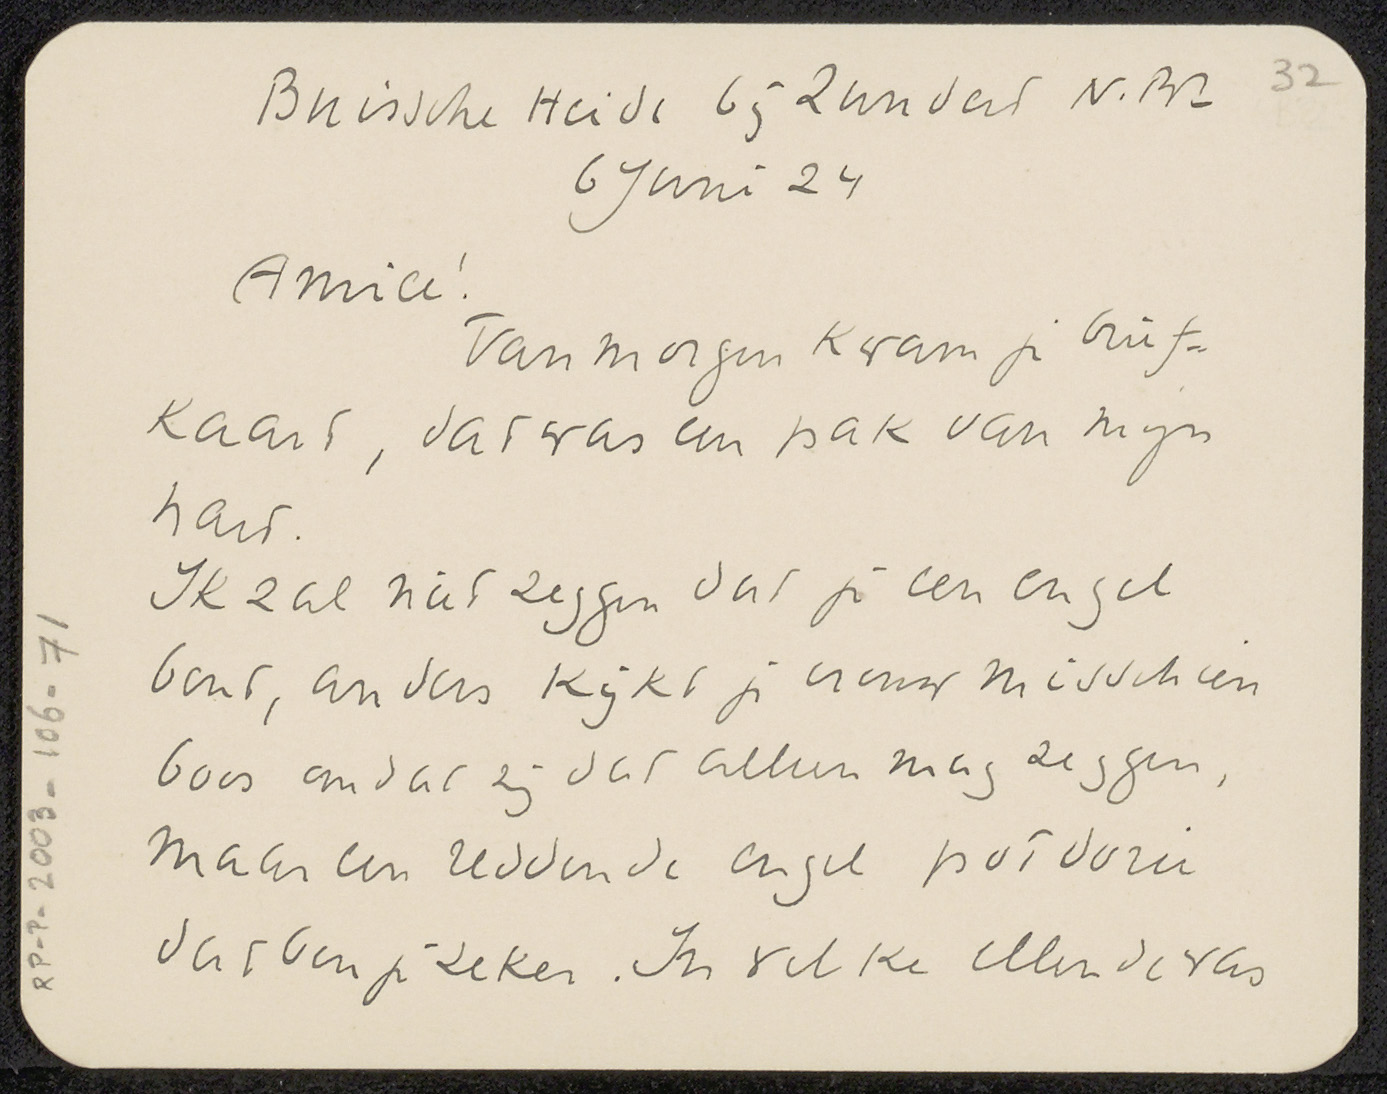 32
Buissche Heide bij Zundert N.Br
6 Juni 24
Amice!
Van morgen kwam je brief=
kaart, dat was een pak van mijn
hart.
Ik zal niet zeggen dat je een engel
bent, anders kijkt je vrouw misschien
boos omdat zij dat alleen mag zeggen,
maar een reddende engel potdorie
dat ben je zeker. In welke ellende was
RP-P-2003-106-71